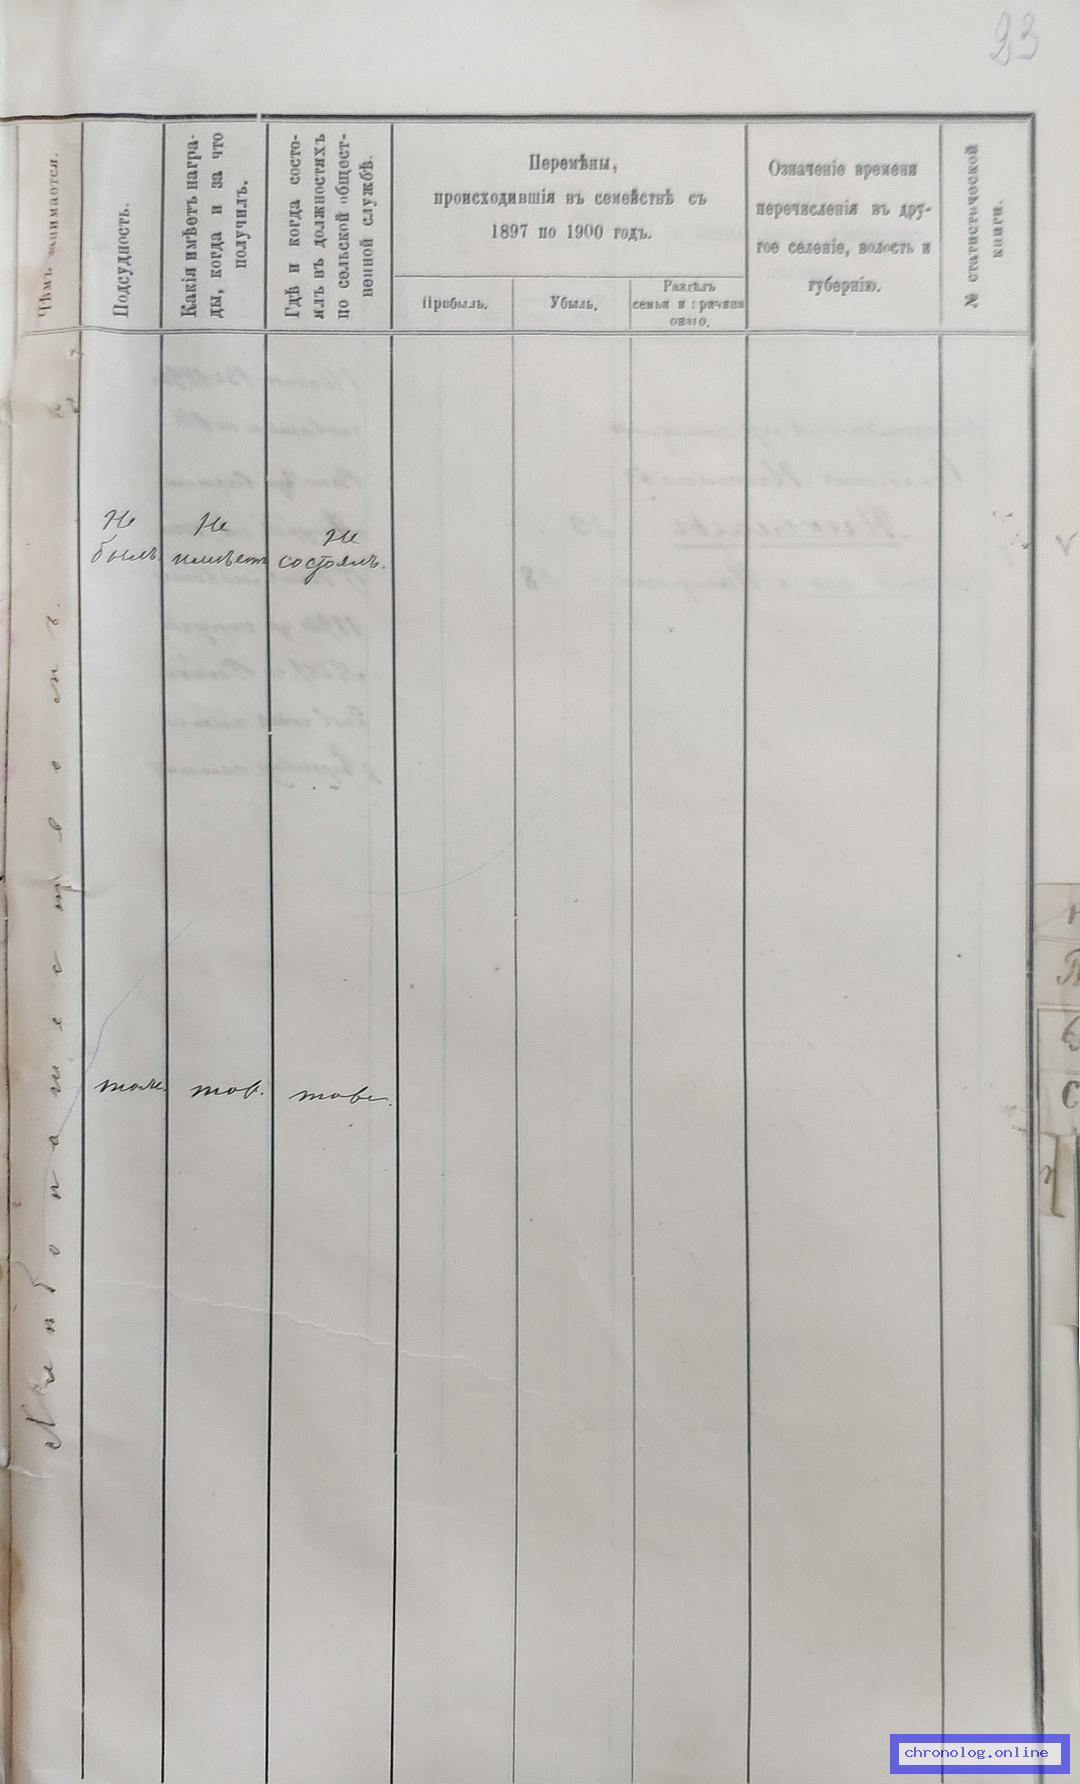 23
Чѣмъ занимается.
Подсудность.
Какія имѣетъ награ-
ды, когда и за что
получилъ.
Гдѣ и когда состо-
ялъ въ должностяхъ
по сельской общест-
венной службѣ.
Перемѣны,
происходившія въ семействѣ съ
1897 по 1900 годъ.
Прибыль.
Убыль.
Раздѣлъ
семьи и причина
онаго.
Означеніе времени
перечисленія въ дру-
гое селеніе, волость и
губернію.
№ статистической
книги.
Хлѣбопашествомъ.
Не
былъ.
Не
имѣетъ
Не
состоялъ.
тоже.
тов.
тоже.
chronolog.online